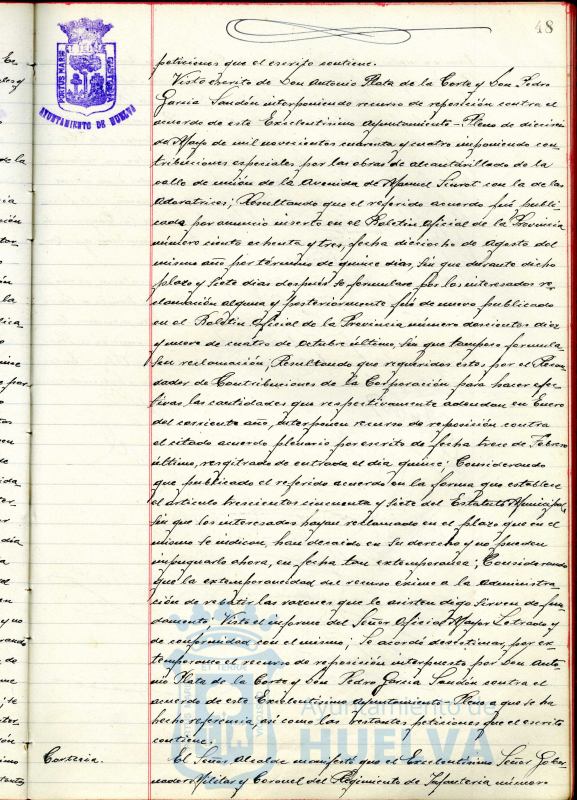 48
PORTUS MARIS ET TERRAE CUSTODIA
AYUNTAMIENTO DE HUELVA
peticiones que el escrito contiene.
Visto escrito de Don Antonio Plata de la Corte y Don Pedro
Garcia Sandón interponiendo recurso de reposición contra el
acuerdo de este Excelentisimo Ayuntamiento-Pleno de dieciseis
de Mayo de mil novecientos cuarenta y cuatro imponiendo con-
tribuciones especiales por las obras de alcantarillado de la
calle de unión de la Avenida de Manuel Siurot con la de las
Adoratrices; Resultando que el referido acuerdo fué publi-
cado por anuncio inserto en el Boletin Oficial de la Provincia
número ciento ochenta y tres, fecha dieciocho de Agosto del
mismo año por término de quince dias, sin que durante dicho
plazo y siete dias después se formulase por los interesados re-
clamación alguna y posteriormente fué de nuevo publicado
en el Boletin Oficial de la Provincia número doscientos diez
y nueve de cuatro de Octubre último, sin que tampoco formula-
sen reclamación; Resultando que requeridos estos por el Recau-
dador de Contribuciones de la Corporación para hacer efec-
tivas las cantidades que respectivamente adeudan en Enero
del corriente año, interponen recurso de reposición contra
el citado acuerdo plenario por escrito de fecha trece de Febrero
último, resgitrado de entrada el dia quince; Considerando
que publicado el referido acuerdo en la forma que establece
el articulo trescientos cincuenta y siete del Estatuto Municipal,
sin que los interesados hayan reclamado en el plazo que en el
mismo se indican, han decaido en su derecho y no pueden
impugnarlo ahora, en fecha tan extemporanea; Considerando
que la extemporaneidad del recurso exime a la administra-
ción de rebatir las razones que le asisten digo sirven de fun-
damento; Visto el informe del Señor Oficial Mayor Letrado y
de conformidad con el mismo; Se acordó desestimar, por ex-
temporaneo el recurso de reposición interpuesto por Don Anto-
nio Plata de la Corte y Don Pedro Garcia Sandón contra el
acuerdo de este Excelentisimo Ayuntamiento Pleno a que se ha
hecho referencia, asi como las restantes peticiones que el escrito
contiene.
Cortesia.
El Señor Alcalde manifestó que el Excelentisimo Señor Gober-
nador Militar y Coronel del Regimiento de Infanteria número
Ayuntamiento de
HUELVA